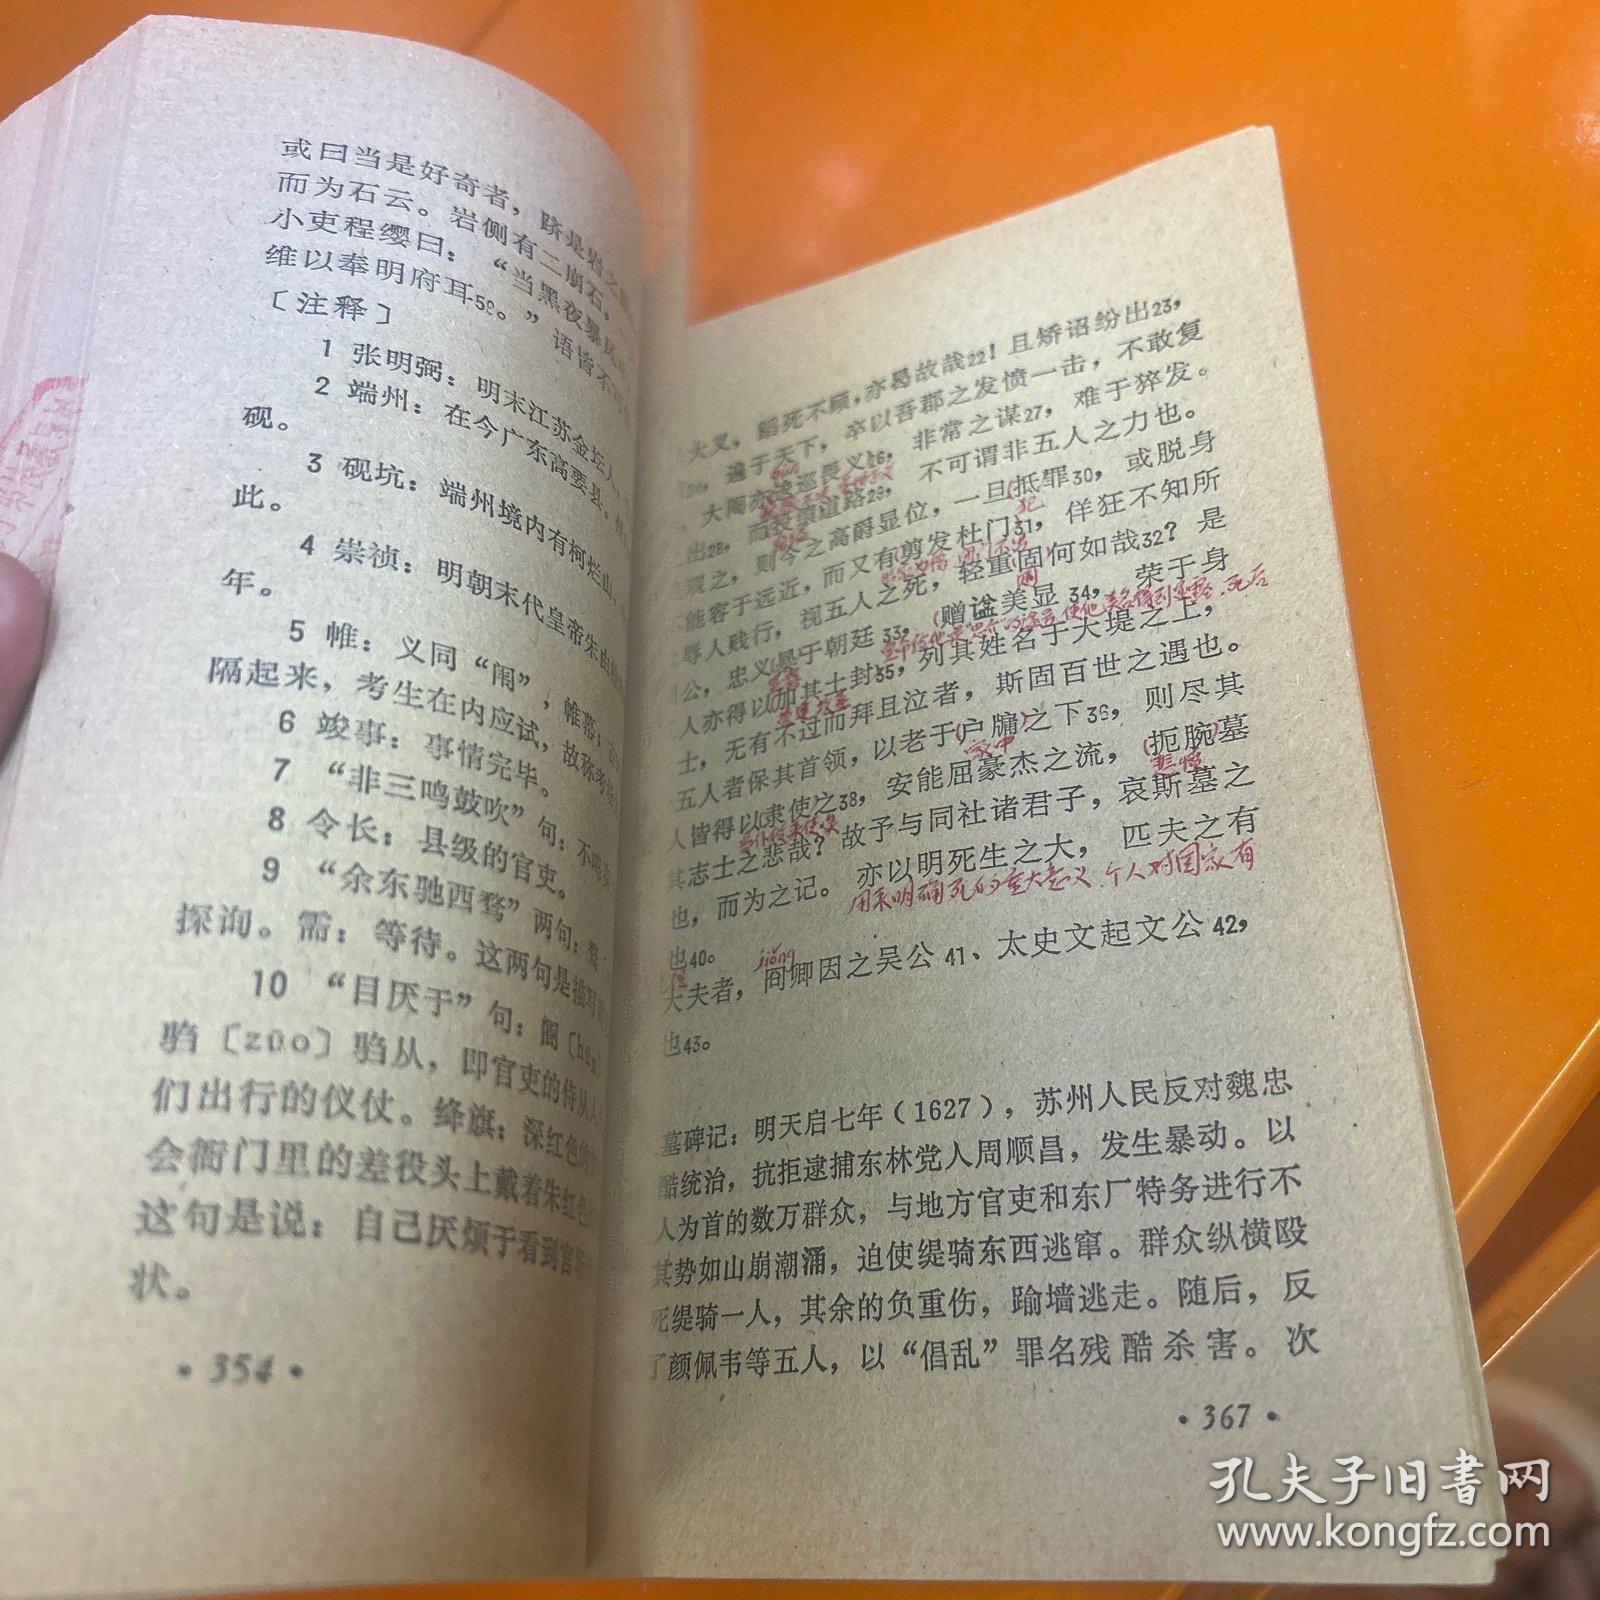 或曰当是好奇者，跻是岩之
而为石云。岩侧有二崩石，
小吏程缨曰：“当黑夜暴风
维以奉明府耳50。”语皆不
〔注释〕
1 张明弼：明末江苏金坛人，
2 端州：在今广东高要县。
砚。
3 砚坑：端州境内有柯烂山，
此。
4 崇祯：明朝末代皇帝朱
年。
5 帷：义同“闱”，帷幕；
隔起来，考生在内应试，故称考
6 竣事：事情完毕。
7 “非三鸣鼓吹”句：不鸣
8 令长：县级的官吏。
9 “余东驰西骛”两句：骛
探询。需：等待。这两句是描写
10 “目厌于”句：
驺〔zōo〕驺从，即官吏的侍从人
们出行的仪仗。绛旗：深红色的
会衙门里的差役头上戴着朱红色
这句是说：自己厌烦于看到官
状。
·354·
大义，蹈死不顾，亦曷故哉22！且矫诏纷出23，
遍于天下，卒以吾郡之发愤一击，不敢复
大阉亦逡巡畏义26，非常之谋27，难于猝发。
出28，而投缳道路29，不可谓非五人之力也。
观之，则今之高爵显位，一旦抵罪30，或脱身
犯
能容于远近，而又有剪发杜门31，佯狂不知所
辱人贱行，视五人之死，轻重固何如哉32？是
公，忠义暴于朝廷33，赠谥美显34，荣于身
人亦得以加其土封35，列其姓名于大堤之上，
士，无有不过而拜且泣者，斯固百世之遇也。
五人者保其首领，以老于户牖之下36，则尽其
家中
人皆得以隶使之38，安能屈豪杰之流，扼腕墓
其志士之悲哉？故予与同社诸君子，哀斯墓之
也，而为之记。亦以明死生之大，匹夫之有
用来明确死的重大意义，个人对国家有
也40。
jiǒng
大夫者，冏卿因之吴公41、太史文起文公42，
也43。
墓碑记：明天启七年（1627），苏州人民反对魏忠
酷统治，抗拒逮捕东林党人周顺昌，发生暴动。以
人为首的数万群众，与地方官吏和东厂特务进行不
其势如山崩潮涌，迫使缇骑东西逃窜。群众纵横殴
死缇骑一人，其余的负重伤，踰墙逃走。随后，反
了颜佩韦等五人，以“倡乱”罪名残酷杀害。次
·367·
孔夫子旧书网
www.kongfz.com